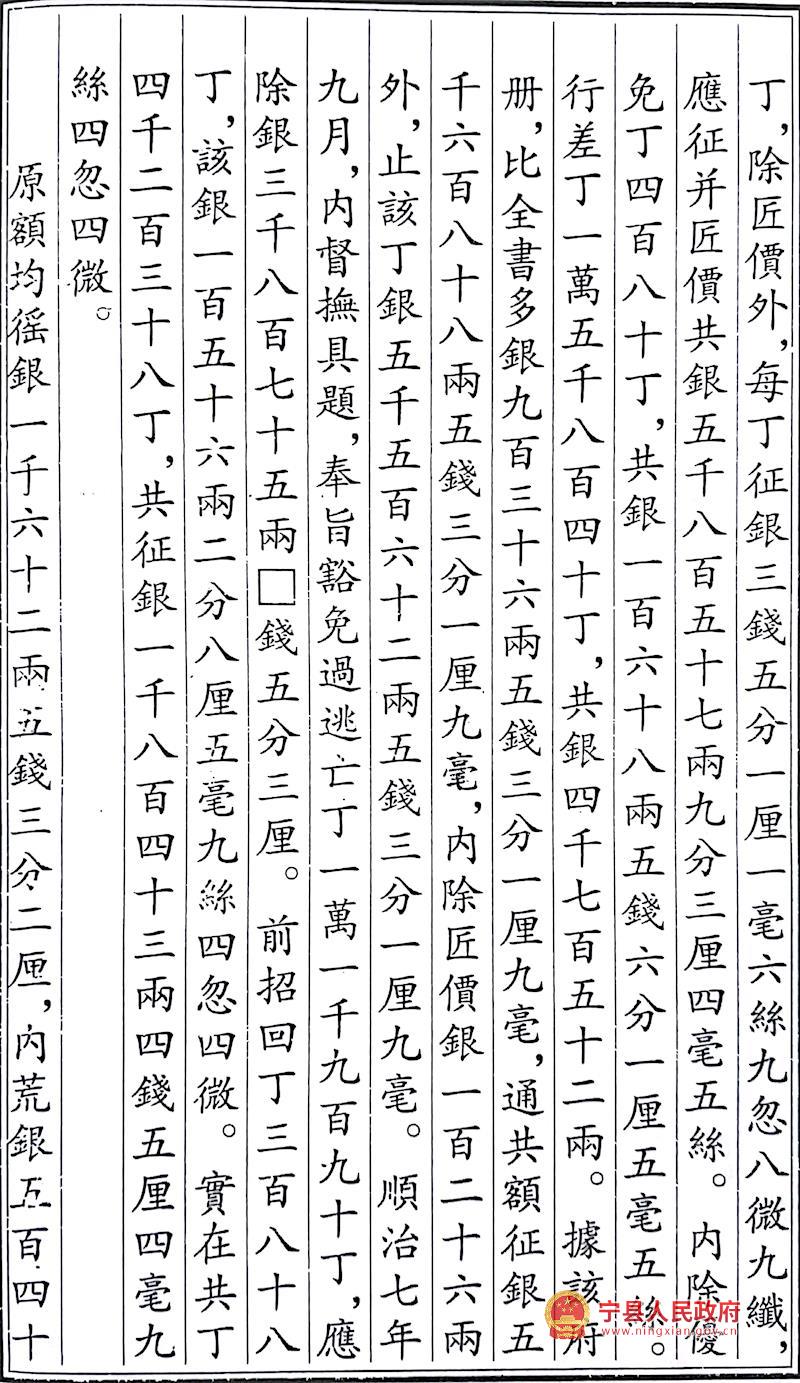 丁，除匠價外，每丁征銀三錢五分一厘一毫六絲九忽八微九纖，
應征并匠價共銀五千八百五十七兩九分三厘四毫五絲。内除優
免丁四百八十丁，共銀一百六十八兩五錢六分一厘五毫五絲。
行差丁一萬五千八百四十丁，共銀四千七百五十二兩。據該府
册，比全書多銀九百三十六兩五錢三分一厘九毫，通共額征銀五
千六百八十八兩五錢三分一厘九毫，内除匠價銀一百二十六兩
外，止該丁銀五千五百六十二兩五錢三分一厘九毫。順治七年
九月，内督撫具題，奉旨豁免過逃亡丁一萬一千九百九十丁，應
除銀三千八百七十五兩□錢五分三厘。前招回丁三百八十八
丁，該銀一百五十六兩二分八厘五毫九絲四忽四微。實在共丁
四千二百三十八丁，共征銀一千八百四十三兩四錢五厘四毫九
絲四忽四微。
原額均徭銀一千六十二兩五錢三分二厘，内荒銀五百四十
宁县人民政府
www.ningxian.gov.cn